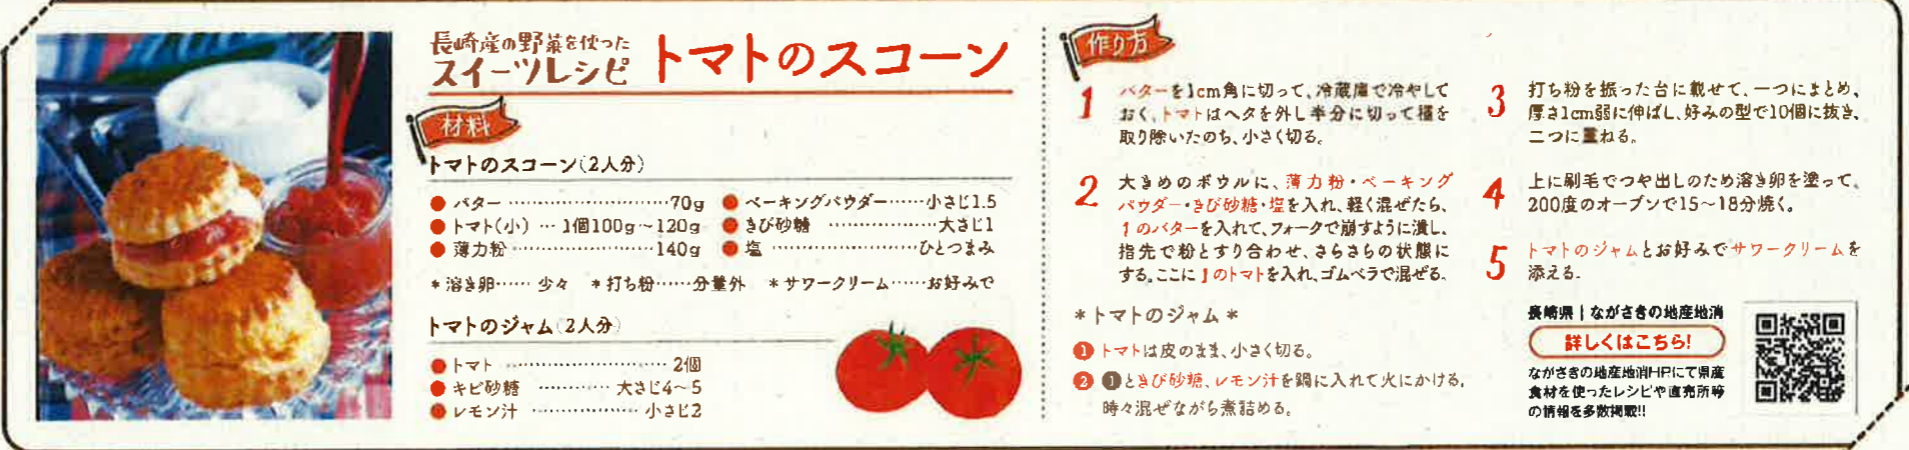 長崎産の野菜を使った
スイーツレシピ
トマトのスコーン
材料
トマトのスコーン(2人分)
●バター……………………70g
●トマト(小)…1個100g~120g
●薄力粉……………………140g
●ベーキングパウダー……小さじ1.5
●きび砂糖………………大さじ1
●塩……………………ひとつまみ
*溶き卵……少々 *打ち粉……分量外 *サワークリーム……お好みで
トマトのジャム(2人分)
●トマト……………………2個
●キビ砂糖…………大さじ4~5
●レモン汁………………小さじ2
作り方
1 バターを1cm角に切って、冷蔵庫で冷やして
おく、トマトはヘタを外し半分に切って種を
取り除いたのち、小さく切る。
2 大きめのボウルに、薄力粉・ベーキング
パウダー・きび砂糖・塩を入れ、軽く混ぜたら、
1のバターを入れて、フォークで崩すように潰し、
指先で粉とすり合わせ、さらさらの状態に
する。ここに1のトマトを入れ、ゴムベラで混ぜる。
*トマトのジャム*
1 トマトは皮のまま、小さく切る。
2 1ときび砂糖、レモン汁を鍋に入れて火にかける。
時々混ぜながら煮詰める。
3 打ち粉を振った台に載せて、一つにまとめ、
厚さ1cm弱に伸ばし、好みの型で10個に抜き、
二つに重ねる。
4 上に刷毛でつや出しのため溶き卵を塗って、
200度のオーブンで15~18分焼く。
5 トマトのジャムとお好みでサワークリームを
添える。
長崎県|ながさきの地産地消
詳しくはこちら!
ながさきの地産地消HPにて県産
食材を使ったレシピや直売所等
の情報を多数掲載!!